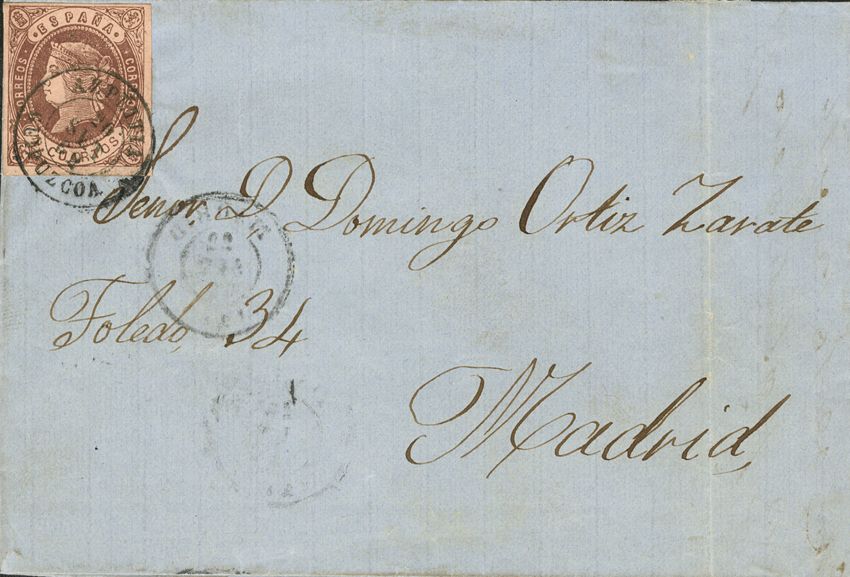 ESPAÑA
CORREOS
CORREOS
GUIPUZCOA
Senor D Domingo Ortiz Zarate
Toledo, 34
Madrid